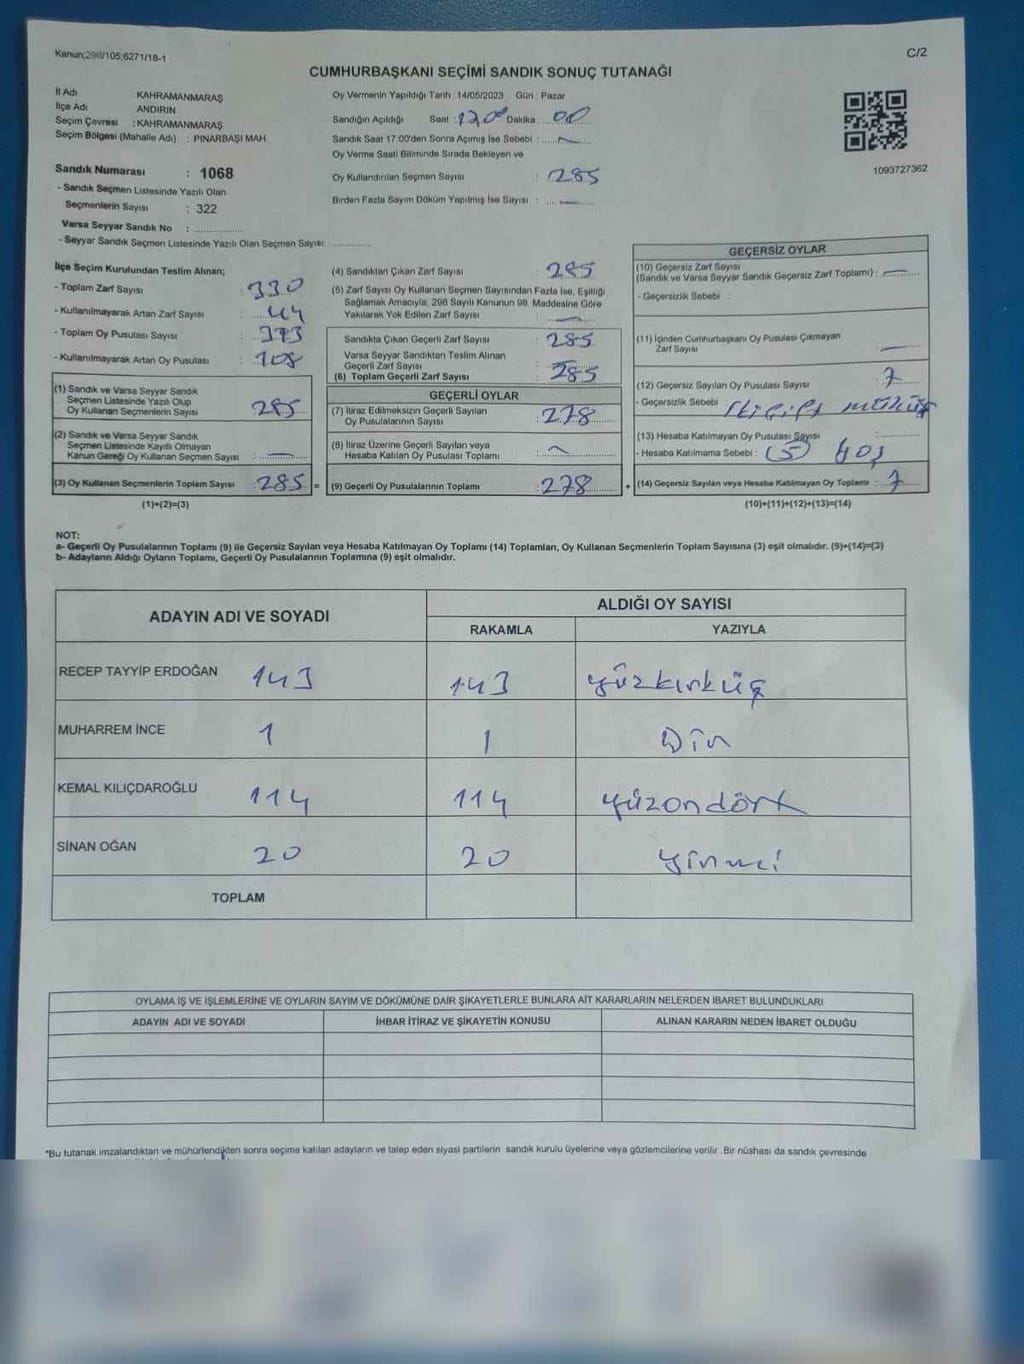 Kanun;298/105;6271/18-1
C/2
CUMHURBAŞKANI SEÇİMİ SANDIK SONUÇ TUTANAĞI
İl Adı : KAHRAMANMARAŞ
İlçe Adı ANDIRIN
Seçim Çevresi : KAHRAMANMARAŞ
Seçim Bölgesi (Mahalle Adı) : PINARBAŞI MAH
Sandık Numarası : 1068
- Sandık Seçmen Listesinde Yazılı Olan
Seçmenlerin Sayısı : 322
Varsa Seyyar Sandık No :
- Seyyar Sandık Seçmen Listesinde Yazılı Olan Seçmen Sayısı:
Oy Vermenin Yapıldığı Tarih : 14/05/2023 Gün : Pazar
Sandığın Açıldığı Saat : Dakika : 00
Sandık Saat 17:00'den Sonra Açımış İse Sebebi :
Oy Verme Saati Bitiminde Sırada Bekleyen ve
Oy Kullandırılan Seçmen Sayısı : 285
Birden Fazla Sayım Döküm Yapılmış İse Sayısı :
1093727362
İlçe Seçim Kurulundan Teslim Alınan;
- Toplam Zarf Sayısı : 330
- Kullanılmayarak Artan Zarf Sayısı : 44
- Toplam Oy Pusulası Sayısı : 393
- Kullanılmayarak Artan Oy Pusulası : 108
(1) Sandık ve Varsa Seyyar Sandık
Seçmen Listesinde Yazılı Olup
Oy Kullanan Seçmenlerin Sayısı 285
(2) Sandık ve Varsa Seyyar Sandık
Seçmen Listesinde Kayıtlı Olmayan
Kanun Gereği Oy Kullanan Seçmen Sayısı : —
(3) Oy Kullanan Seçmenlerin Toplam Sayısı : 285 =
(1)+(2)=(3)
(4) Sandıktan Çıkan Zarf Sayısı : 285
(5) Zarf Sayısı Oy Kullanan Seçmen Sayısından Fazla İse, Eşitliği
Sağlamak Amacıyla, 298 Sayılı Kanunun 98. Maddesine Göre
Yakılarak Yok Edilen Zarf Sayısı : —
Sandıkta Çıkan Geçerli Zarf Sayısı : 285
Varsa Seyyar Sandıktan Teslim Alınan
Geçerli Zarf Sayısı
(6) Toplam Geçerli Zarf Sayısı : 285
GEÇERLİ OYLAR
(7) İtiraz Edilmeksizin Geçerli Sayılan
Oy Pusulalarının Sayısı : 278
(8) İtiraz Üzerine Geçerli Sayılan veya
Hesaba Katılan Oy Pusulası Toplamı :
(9) Geçerli Oy Pusulalarının Toplamı : 278 +
GEÇERSİZ OYLAR
(10) Geçersiz Zarf Sayısı
(Sandık ve Varsa Seyyar Sandık Geçersiz Zarf Toplamı) : —
- Geçersizlik Sebebi :
(11) İçinden Cumhurbaşkanı Oy Pusulası Çıkmayan
Zarf Sayısı : —
(12) Geçersiz Sayılan Oy Pusulası Sayısı : 7
- Geçersizlik Sebebi
(13) Hesaba Katılmayan Oy Pusulası Sayısı :
- Hesaba Katılmama Sebebi : (5) boş
(14) Geçersiz Sayılan veya Hesaba Katılmayan Oy Toplamı : 7
(10)+(11)+(12)+(13)=(14)
NOT:
a- Geçerli Oy Pusulalarının Toplamı (9) ile Geçersiz Sayılan veya Hesaba Katılmayan Oy Toplamı (14) Toplamları, Oy Kullanan Seçmenlerin Toplam Sayısına (3) eşit olmalıdır. (9)+(14)=(3)
b- Adayların Aldığı Oyların Toplamı, Geçerli Oy Pusulalarının Toplamına (9) eşit olmalıdır.
ADAYIN ADI VE SOYADI
ALDIĞI OY SAYISI
RAKAMLA YAZIYLA
RECEP TAYYİP ERDOĞAN 143 143 yüzkırküç
MUHARREM İNCE 1 1 Bir
KEMAL KILIÇDAROĞLU 114 114 yüzondört
SİNAN OĞAN 20 20 yirmi
TOPLAM
OYLAMA İŞ VE İŞLEMLERİNE VE OYLARIN SAYIM VE DÖKÜMÜNE DAİR ŞİKAYETLERLE BUNLARA AİT KARARLARIN NELERDEN İBARET BULUNDUKLARI
ADAYIN ADI VE SOYADI İHBAR İTİRAZ VE ŞİKAYETİN KONUSU ALINAN KARARIN NEDEN İBARET OLDUĞU
*Bu tutanak imzalandıktan ve mühürlendikten sonra seçime katılan adayların ve talep eden siyasi partilerin sandık kurulu üyelerine veya gözlemcilerine verilir .Bir nüshası da sandık çevresinde